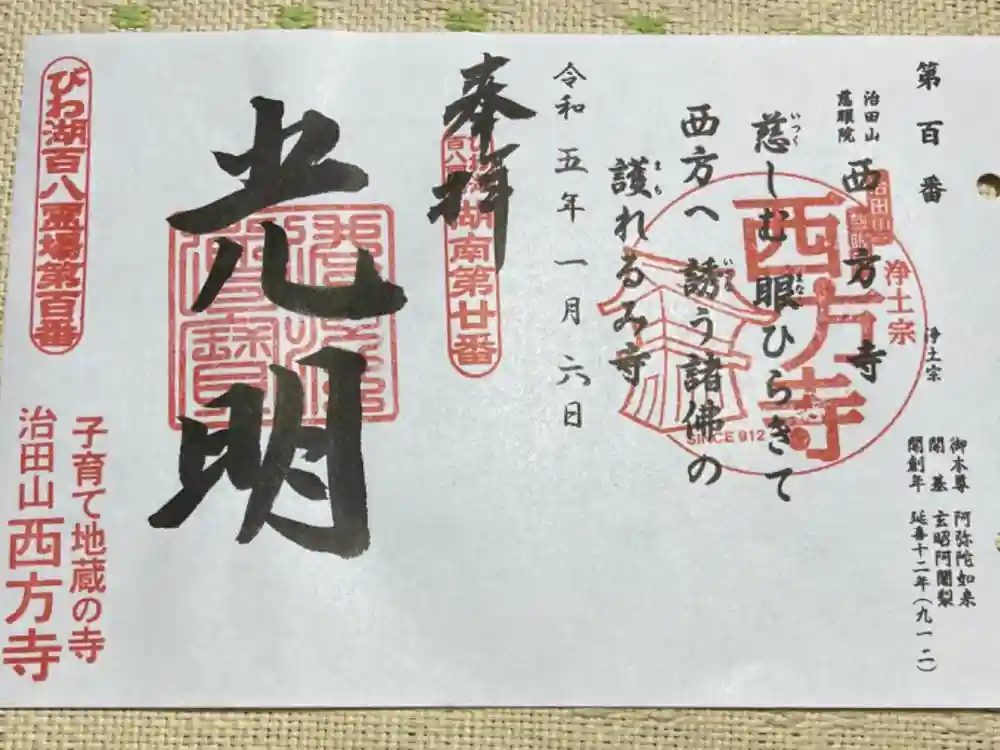 第百番
治田山
慈眼院
西方寺
浄土宗
御本尊 阿弥陀如来
開基 玄昭阿闍梨
開創年 延喜十二年(九一二)
慈しむ眼ひらきて
いつく
まな
西方へ誘う諸佛の
いざ
護れるみ寺
まも
治田山
浄土宗
西方寺
SINCE 912
令和五年一月六日
奉拝
湖南第廿番
光明
びわ湖百八霊場第百番
子育て地蔵の寺
治田山 西方寺